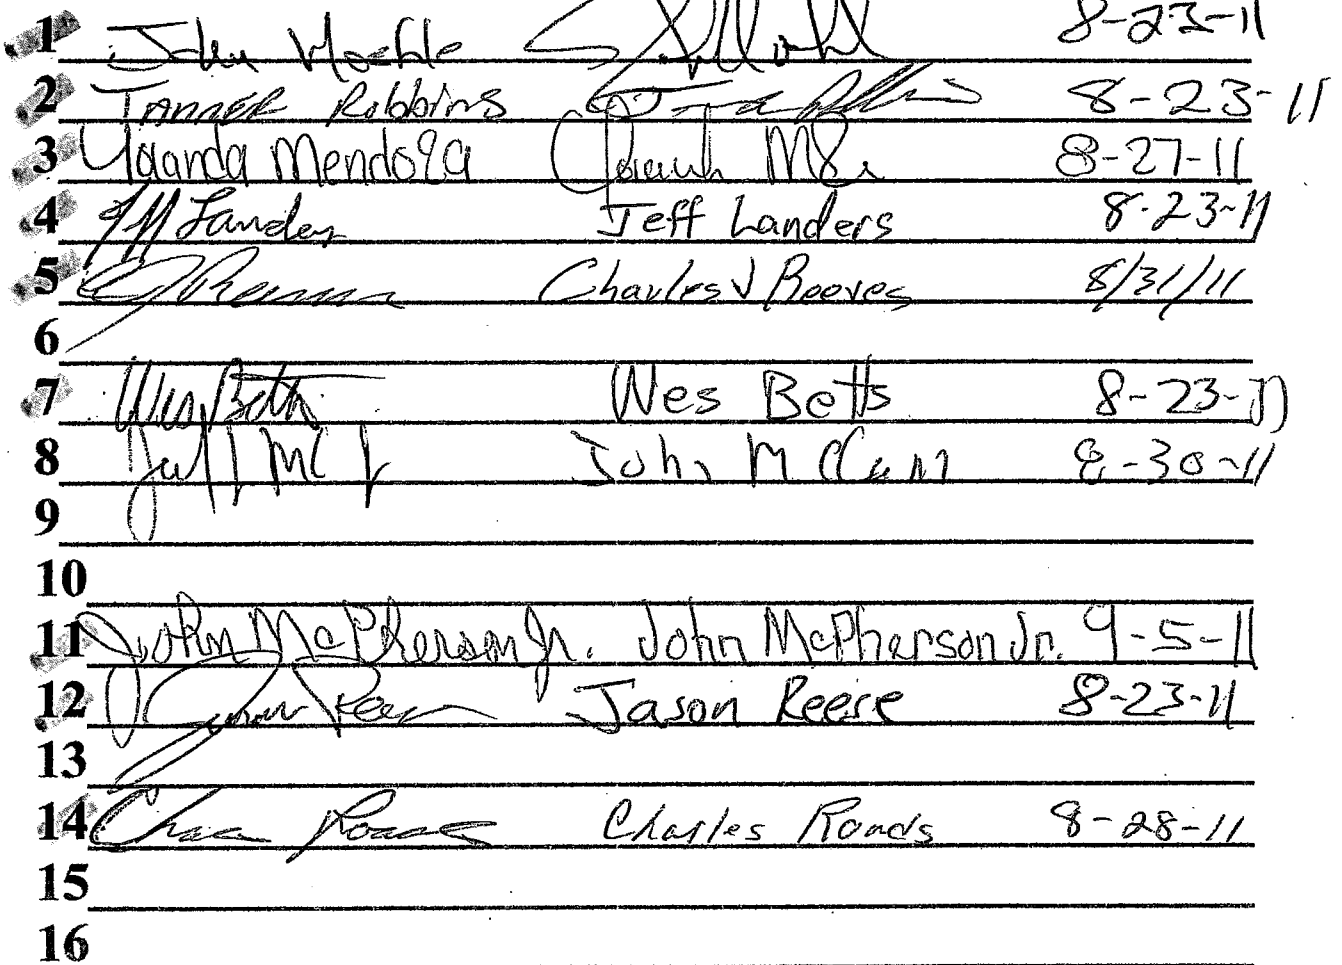 1 John 8-23-11
2 Tanner Robbins 8-23-11
3 Yolanda Mendoza 8-27-11
4 Jeff Landers Jeff Landers 8-23-11
5 Charles J Reeves 8/31/11
6
7 Wes Betts Wes Betts 8-23-11
8 John McCann 8-30-11
9
10
11 John McPherson Jr. John McPherson Jr. 9-5-11
12 Jason Reese Jason Reese 8-23-11
13
14 Charles Roads 8-28-11
15
16